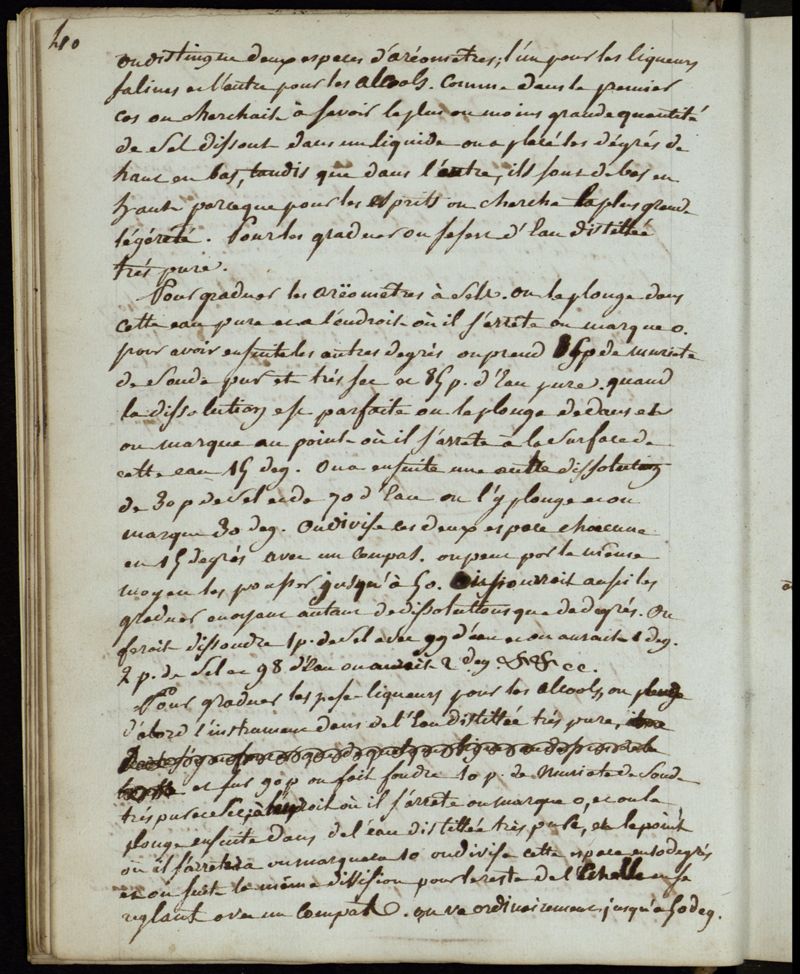 480
on distingue deux especes d'aréometres; l'un pour les liqueurs
salines et l'autre pour les alcools. Comme dans le premier
cas on cherchait à savoir la plus ou moins grande quantité
de sel dissout dans un liquide on a placé les dégrés de
haut en bas, tandis que dans l'autre, ils sont de bas en
haut parceque pour les esprits on cherche la plus grande
légéreté. Pour les graduer on se sert d'eau distillée
trés pure.
Pour graduer les aréometres à sels. on le plonge dans
cette eau pure et a l'endroit où il s'arrete on marque 0.
pour avoir ensuite les autres degrés on prend 15 p de muriate
de soude pur et trés sec et 85 p. d'eau pure. quand
la dissolution est parfaite on le plonge dedans et
on marque au point où il s'arrete à la surface de
cette eau 15 deg. On a ensuite une autre dissolution
de 30 p de sel et de 70 d'eau on l'y plonge et on
marque 30 deg. On divise ces deux espace chacune
en 15 degrés avec un compas. on peut par le même
moyen les pousser jusqu'à 50. On pourroit aussi les
graduer en ayant autant de dissolutions que de degrés. On
feroit dissoudre 1 p. de sel avec 99 d'eau et on auroit 1 deg.
2 p. de sel et 98 d'eau on auroit 2 deg &&cc.
Pour graduer les pese-liqueurs pour les alcools, on plonge
d'abord l'instrument dans de l'eau distillée trés pure,
et sur 90 p on fait fondre 10 p. de muriate de soude
trés pur et sec, à l'endroit où il s'arrete on marque 0, et on le
plonge ensuite dans de l'eau distillée trés pure, et le point
où il s'arretera on marquera 10 on divise cette espace en 10 degrés
et on fait la même division pour le reste de l'échelle en se
reglant avec un compas. on va ordinairement jusqu'à 50 deg.